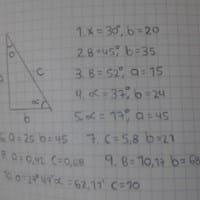 c
b
α
1. x = 30°, b = 20
2. B = 45°, b = 35
3. B = 52°, a = 15
4. α = 37°, b = 24
5. α = 17°, a = 45
6. a = 25 b = 45
7. c = 5,8 b = 21
8. a = 0,42 c = 0,68
9. B = 70,17 b = 68
= 62,11' c = 10